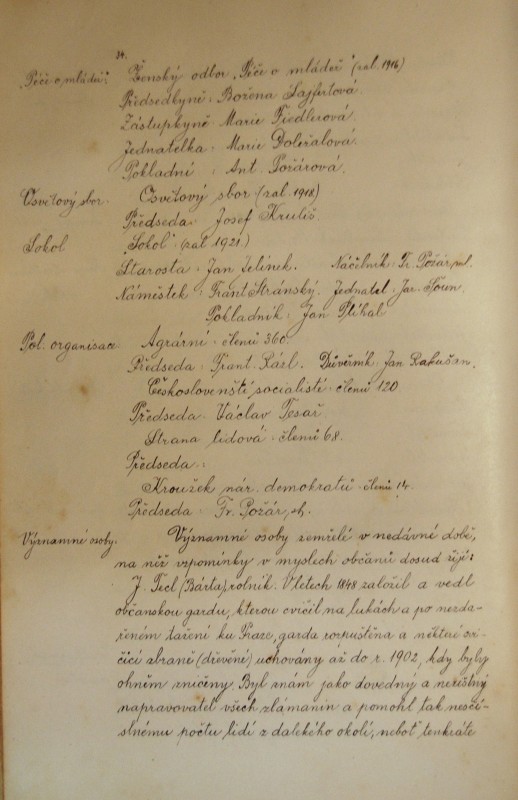 34.
Péče o mládež. Ženský odbor „Péče o mládež" (zal. 1916)
Předsedkyně: Božena Sajfertová.
Zástupkyně Marie Fiedlerová.
Jednatelka: Marie Doležalová.
Pokladní: Ant. Požárová.
Osvětový sbor. Osvětový sbor (zal. 1918)
Předseda Josef Kruliš.
Sokol. „Sokol" (zal 1921)
Starosta: Jan Jelínek. Náčelník: Fr. Požár, ml.
Náměstek: Frant Stránský. Jednatel: Jar. Šoun.
Pokladník: Jan Plíhal
Pol. organisace. Agrární: členů 360.
Předseda: Frant. Kárl. Důvěrník: Jan Rakušan.
Českoslovenští socialisti: členů 120
Předseda: Václav Tesař.
Strana lidová: členů 68.
Předseda:
Kroužek nár. demokratů: členů 14.
Předseda: Fr. Požár, st.
Významné osoby. Významné osoby zemřelé v nedávné době,
na niž vzpomínky v myslech občanů dosud žijí:
J. Fiedl (Bárta), rolník. V letech 1848 založil a vedl
občanskou gardu, kterou cvičil na lukách a po nezda-
řeném tažení ku Praze, garda rozpuštěna a některé cvi-
čící zbraně (dřevěné) uchovány až do r. 1902, kdy byly
ohněm zničeny. Byl znám jako dovedný a nezištný
napravovatel všech zlámanin a pomohl tak nesčí-
slnému počtu lidí z dalekého okolí, neboť tenkráte